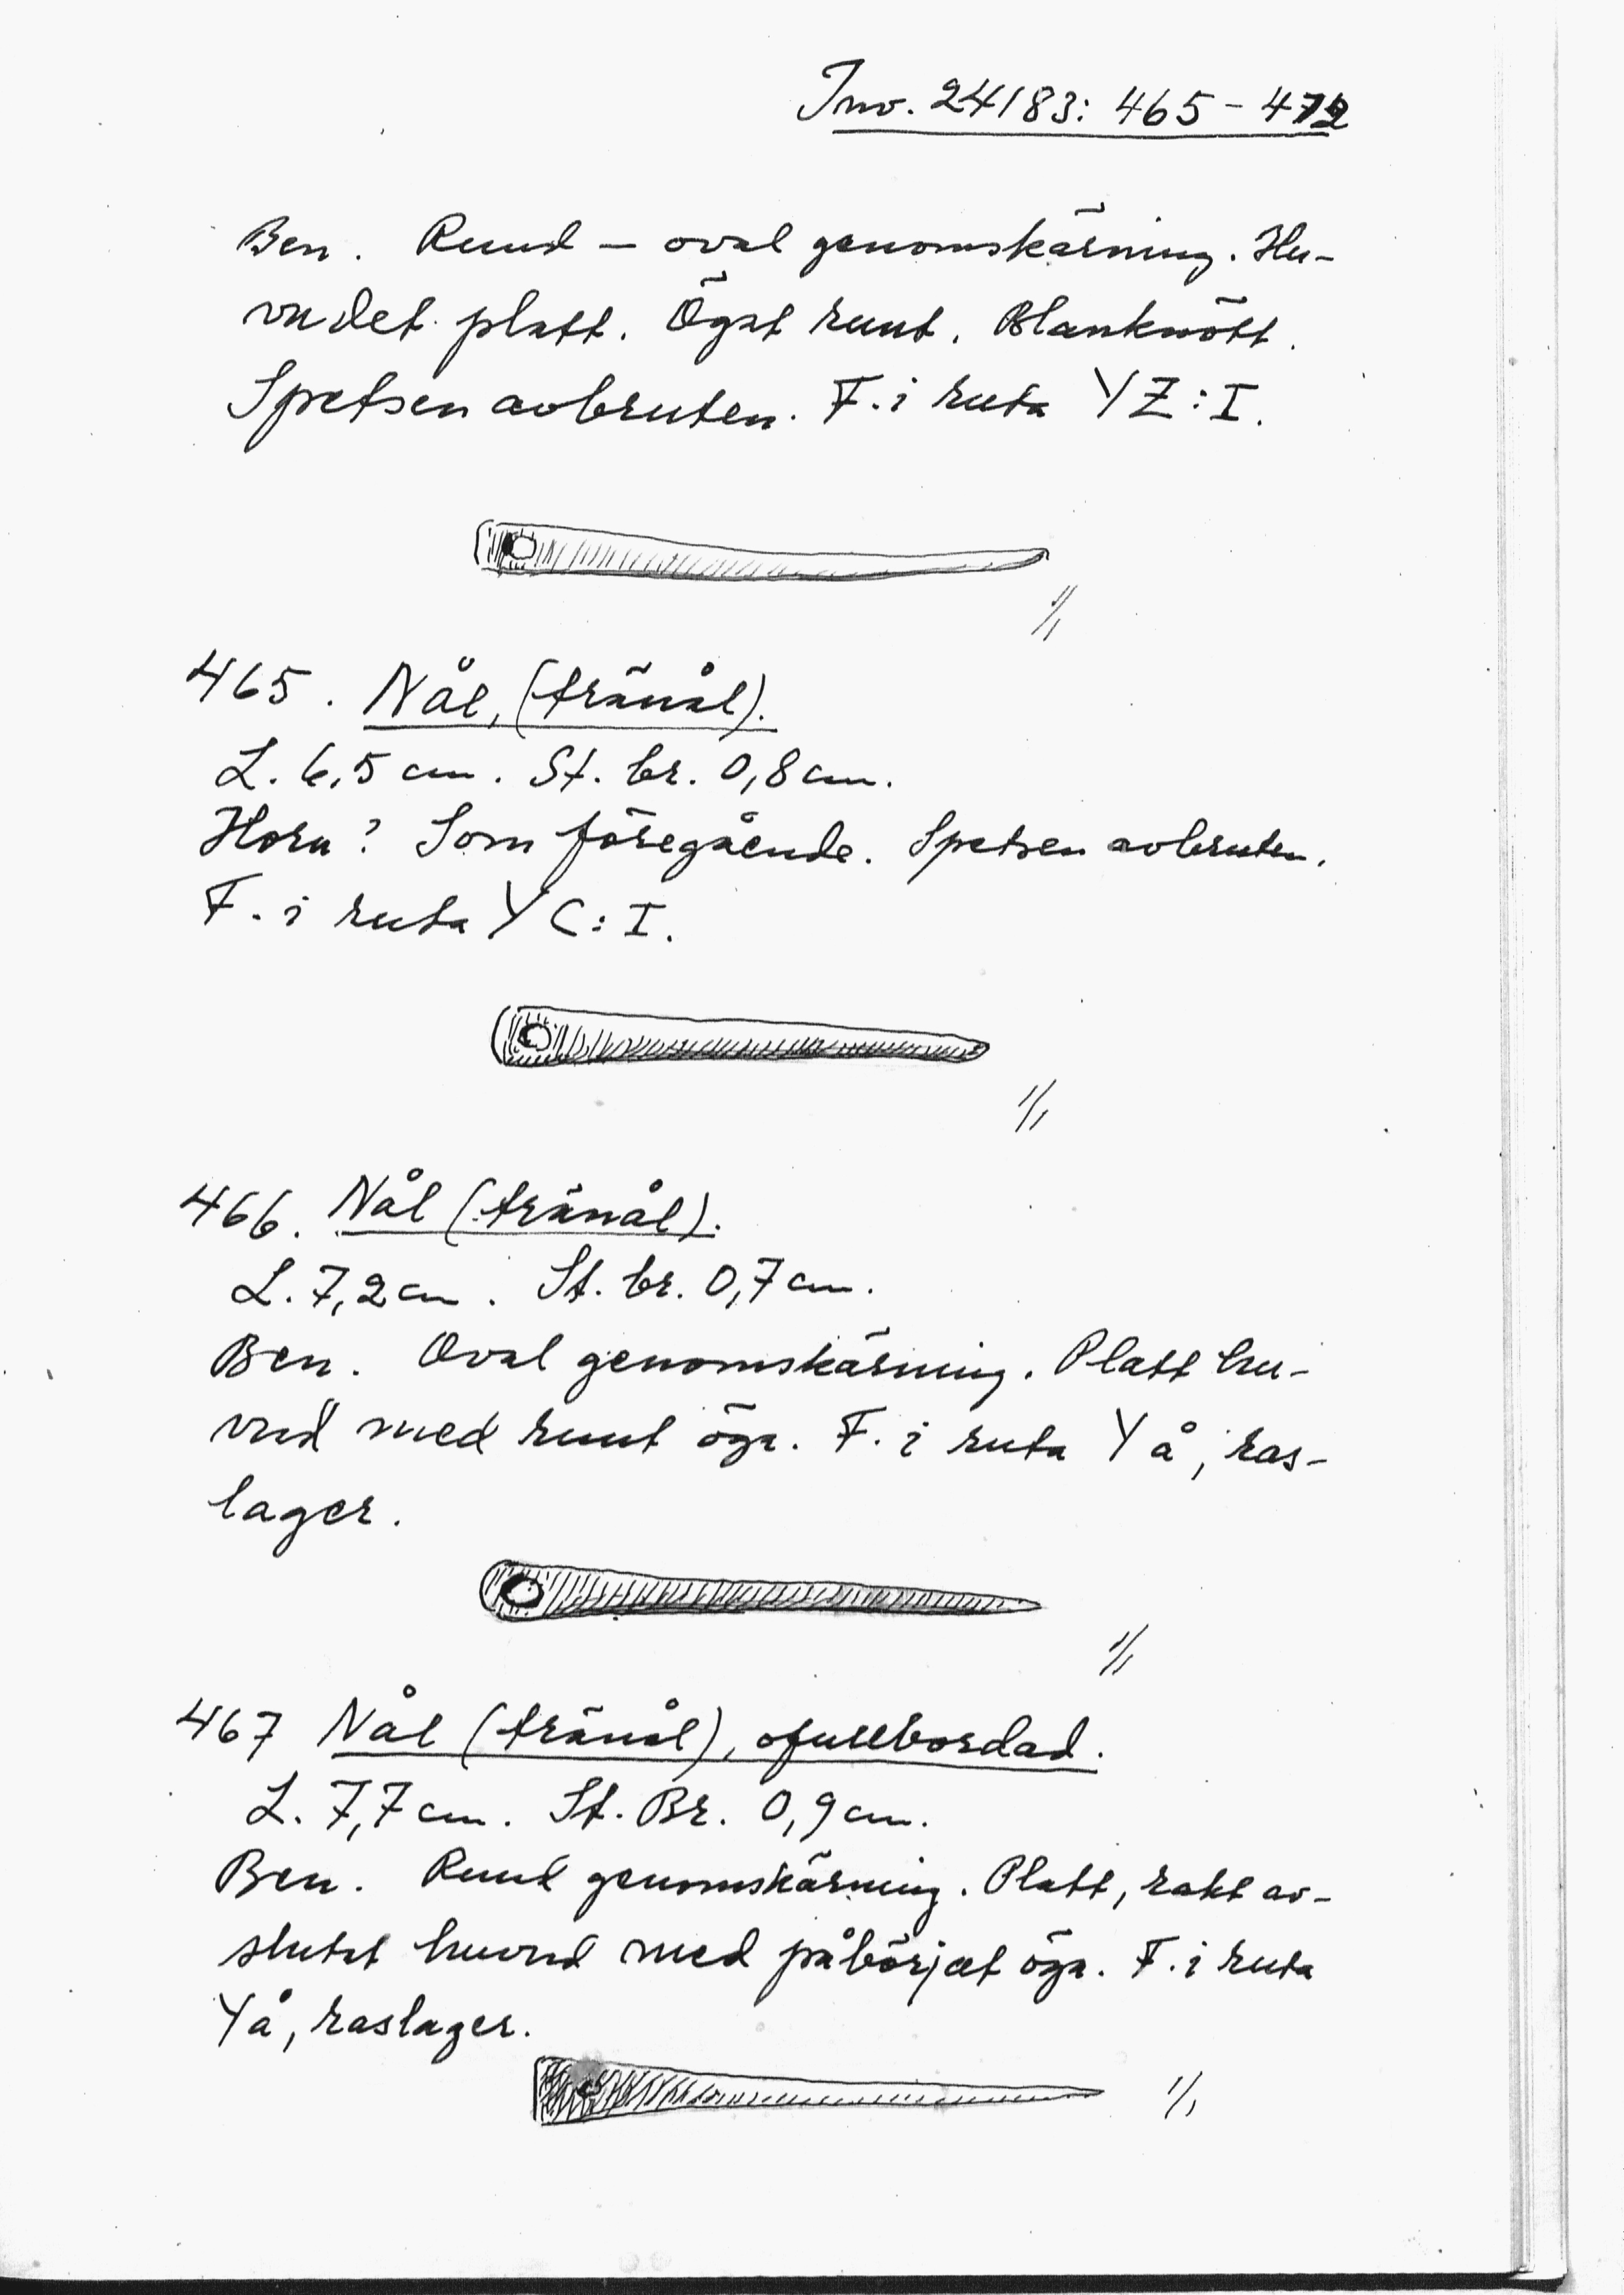 Inv. 24183: 465-472
Ben. Rund - oval genomskärning. Hu-
vudet platt. Ögat runt. Blanknött.
Spetsen avbruten. F. i ruta YZ:I.
1/1
465. Nål, (tränål).
L. 6,5 cm. St. br. 0,8 cm.
Horn? Som föregående. Spetsen avbruten.
F. i ruta YC:I.
1/1
466. Nål (tränål).
L. 7,2 cm. St. br. 0,7 cm.
Ben. Oval genomskärning. Platt hu-
vud med runt öga. F. i ruta Yå, ras-
lager.
1/1
467 Nål (tränål), ofullbordad.
L. 7,7 cm. St. Br. 0,9 cm.
Ben. Rund genomskärning. Platt, rakt av-
slutat huvud med påbörjat öga. F. i ruta
Yå, raslager.
1/1